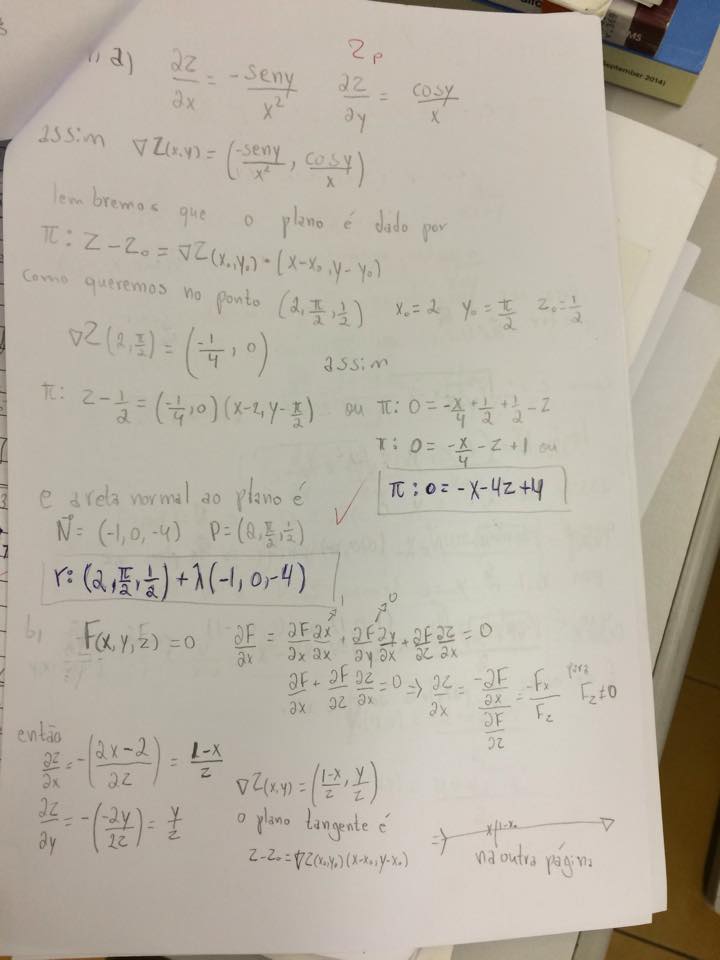 2p
1, a) ∂z/∂x = -seny/x² ∂z/∂y = cosy/x
assim ∇Z(x,y) = (-seny/x², cosy/x)
lembremos que o plano é dado por
π: Z-Z₀ = ∇Z(x₀,y₀)·(x-x₀, y-y₀)
como queremos no ponto (2, π/2, 1/2) x₀=2 y₀=π/2 z₀=1/2
∇Z(2, π/2) = (-1/4, 0) assim
π: z-1/2 = (-1/4, 0)(x-2, y-π/2) ou π: 0 = -x/4 + 1/2 + 1/2 - z
π: 0 = -x/4 - z + 1 ou
π: 0 = -x - 4z + 4
e a reta normal ao plano é
N⃗ = (-1, 0, -4) P = (2, π/2, 1/2)
r: (2, π/2, 1/2) + λ(-1, 0, -4)
b, F(x,y,z) = 0 ∂F/∂x = ∂F/∂x ∂x/∂x ↗1 + ∂F/∂y ∂y/∂x ↗0 + ∂F/∂z ∂z/∂x = 0
∂F/∂x + ∂F/∂z ∂z/∂x = 0 => ∂z/∂x = (-∂F/∂x)/(∂F/∂z) = -Fx/Fz para Fz≠0
então
∂z/∂x = -((2x-2)/2z) = (1-x)/z
∂z/∂y = -(-2y/2z) = y/z
∇Z(x,y) = ((1-x)/z, y/z)
o plano tangente é
z-z₀ = ∇Z(x₀,y₀)(x-x₀, y-x₀)
=> na outra página
September 2014)
MS